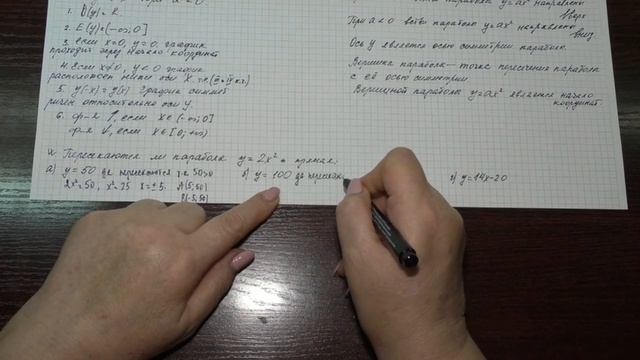 1. D(y) = R.
2. E(y) = (-∞; 0]
3. если x=0, y=0. график
проходит через начало координат
4. если x≠0, y<0 график
расположен ниже оси X
5. y(-x) = y(x) График симмет
ричен относительно оси y.
6. ф-я ↑, если x∈(-∞; 0]
ф-я ↓, если x∈[0; +∞)
парабола y=ax² направлено
вверх
При a<0 ветви параболы y=ax² направлено
вниз
Ось y является осью симметрии параболы.
Вершина параболы – точка пересечения параболы
с её осью симметрии
Вершиной параболы y=ax² является начало
координат.
Пересекаются ли парабола y=2x² и прямая:
а) y=50 да пересекаются т.к 50>0
2x²=50; x²=25 x=±5; A(5;50)
B(-5;50)
б) y=100 да пересек
в) y=14x-20